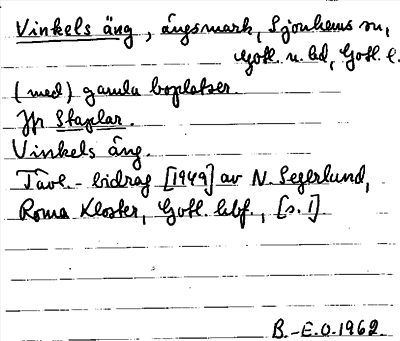 Vinkels äng, ängsmark, Sjonhems sn,
Gotl. n. hd, Gotl. l.
(med) gamla boplatser.
Jfr Staplar.
Vinkels äng.
Tävl.-bidrag [1949] av N. Segerlund,
Roma Kloster, Gotl. hbf., [s. 1]
B.-E.O.1962